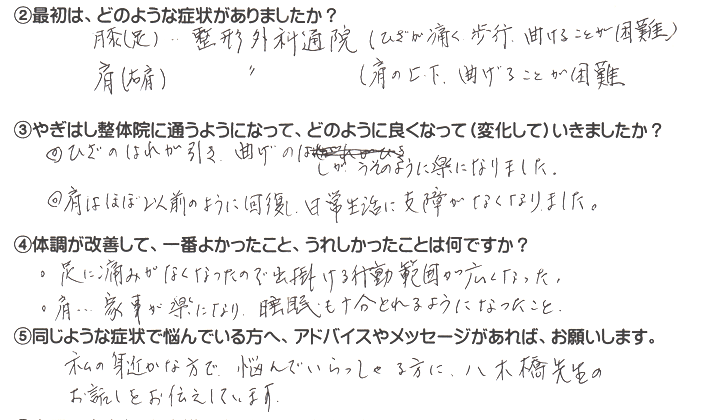 ②最初は、どのような症状がありましたか？
膝(足)‥整形外科通院(ひざが痛く歩行、曲げることが困難)
肩(右肩) 〃 (肩の上下、曲げることが困難
③やぎはし整体院に通うようになって、どのように良くなって(変化して)いきましたか？
◎ひざのはれが引き、曲げのば
しが、うそのように楽になりました。
◎肩はほぼ以前のように回復し、日常生活に支障がなくなりました。
④体調が改善して、一番よかったこと、うれしかったことは何ですか？
。足に痛みがなくなったので出掛ける行動範囲が広くなった。
。肩…家事が楽になり、睡眠も十分とれるようになったこと。
⑤同じような症状で悩んでいる方へ、アドバイスやメッセージがあれば、お願いします。
私の身近かな方で、悩んでいらっしゃる方に、八木橋先生の
お話しをお伝えしています。